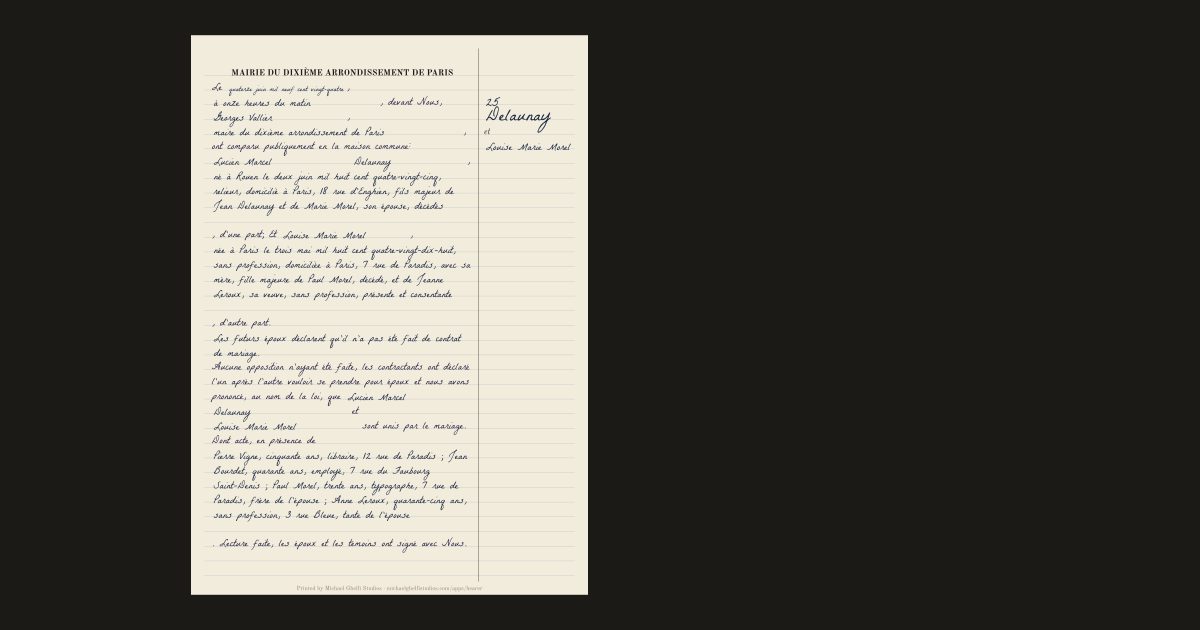 MAIRIE DU DIXIÈME ARRONDISSEMENT DE PARIS
Le quatorze juin mil neuf cent vingt-quatre ,
à onze heures du matin , devant Nous,
Georges Vallier ,
maire du dixième arrondissement de Paris ,
ont comparu publiquement en la maison commune:
Lucien Marcel Delaunay ,
né à Rouen le deux juin mil huit cent quatre-vingt-cinq,
relieur, domicilié à Paris, 18 rue d'Enghien, fils majeur de
Jean Delaunay et de Marie Morel, son épouse, décédés
, d'une part; Et Louise Marie Morel ,
née à Paris le trois mai mil huit cent quatre-vingt-dix-huit,
sans profession, domiciliée à Paris, 7 rue de Paradis, avec sa
mère, fille majeure de Paul Morel, décédé, et de Jeanne
Leroux, sa veuve, sans profession, présente et consentante
, d'autre part.
Les futurs époux déclarent qu'il n'a pas été fait de contrat
de mariage.
Aucune opposition n'ayant été faite, les contractants ont déclaré
l'un après l'autre vouloir se prendre pour époux et nous avons
prononcé, au nom de la loi, que Lucien Marcel
Delaunay et
Louise Marie Morel sont unis par le mariage.
Dont acte, en présence de
Pierre Vigne, cinquante ans, libraire, 12 rue de Paradis ; Jean
Bourdet, quarante ans, employé, 7 rue du Faubourg
Saint-Denis ; Paul Morel, trente ans, typographe, 7 rue de
Paradis, frère de l'épouse ; Anne Leroux, quarante-cinq ans,
sans profession, 3 rue Bleue, tante de l'épouse
. Lecture faite, les époux et les témoins ont signé avec Nous.
25
Delaunay
et
Louise Marie Morel
Printed by Michael Ghelfi Studios · michaelghelfistudios.com/apps/bearer